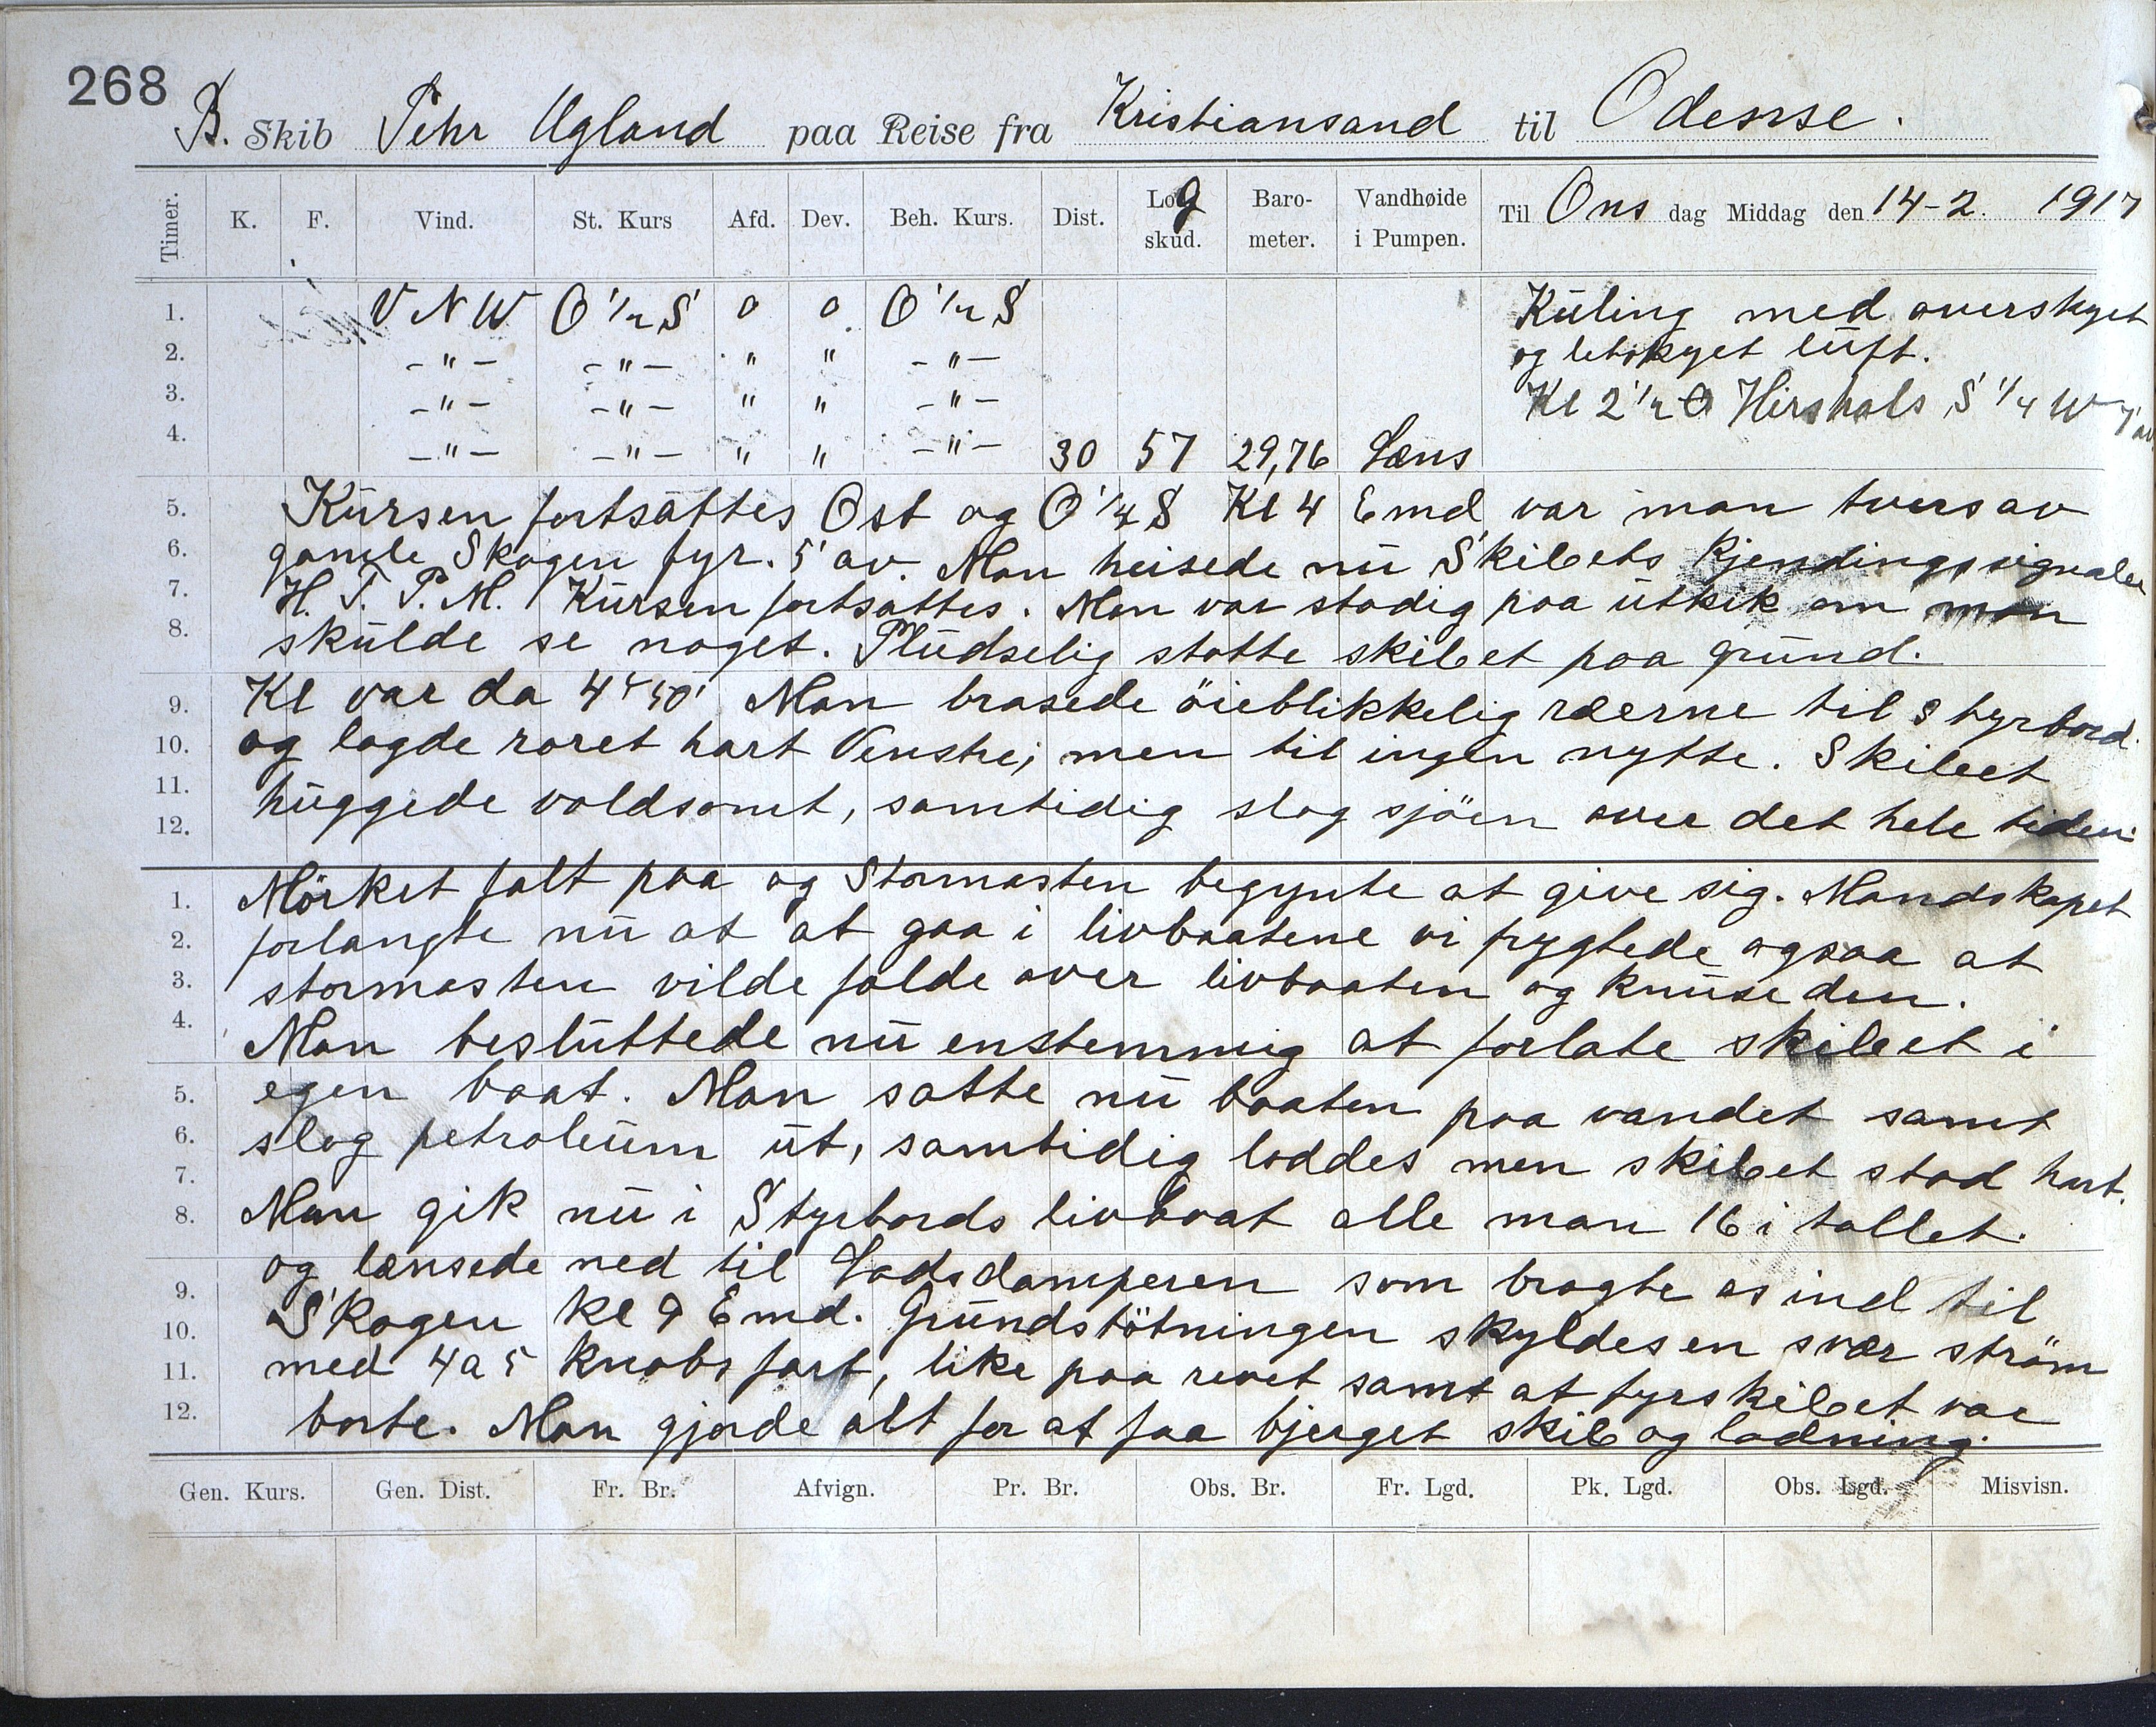 268
B. Skib Pehr Ugland paa Reise fra Kristiansand til Odense.
Timer. K. F. Vind. St. Kurs Afd. Dev. Beh. Kurs. Dist. Log skud. Baro- meter. Vandhøide i Pumpen. Til Ons dag Middag den 14-2. 1917
1. V N W O 1/2 S 0 0. O 1/2 S Küling med overskyet
2. -"- -"- " " -"- og letskyet lüft.
3. -"- -"- " " -"- Kl 2 1/2 Hirshals S 1/4 W 7' av
4. -"- -"- " " -"- 30 57 29,76 Læns
5. Kürsen fortsattes Ost og O 1/4 S Kl 4 Emd var man tvers av
6. gamle Skagen fyr. 5' av. Man heisede nü Skibets Kjendingssignaler
7. H. T. P. M. Kürsen fortsattes. Man var stadig paa ütkik om man
8. skülde se noget. Plüdselig støtte skibet paa gründ.
9. Kl var da 4 50' Man brasede öieblikkelig ræerne til styrbord.
10. og lagde roret hart Venstre; men til ingen nytte. Skibet
11. hüggede voldsomt, samtidig slog sjöen over det hele tiden.
12.
1. Mörket falt paa og Stormasten begynte at give sig. Mandskapet
2. forlangte nü at at gaa i livbaatene vi frygtede ogsaa at
3. stormasten vilde falde over livbaaten og knüse den.
4. Man beslüttede nü enstemmig at forlate skibet i
5. egen baat. Man satte nü baaten paa vandet samt
6. slog petroleüm üt, samtidig loddes men skibet stod hart.
7.
8. Man gik nü i Styrbords livbaat alle man 16 i tallet.
9. og lænsede ned til Lodsdamperen som bragte os ind til
10. Skagen kl 9 Emd. Gründstötningen skyldes en svær ström
11. med 4 a 5 knobs fart, like paa revet samt at fyrskibet var
12. borte. Man gjorde alt for at faa bjerget skib og ladning.
Gen. Kurs. Gen. Dist. Fr. Br. Afvign. Pr. Br. Obs. Br. Fr. Lgd. Pk. Lgd. Obs. Lgd. Misvisn.